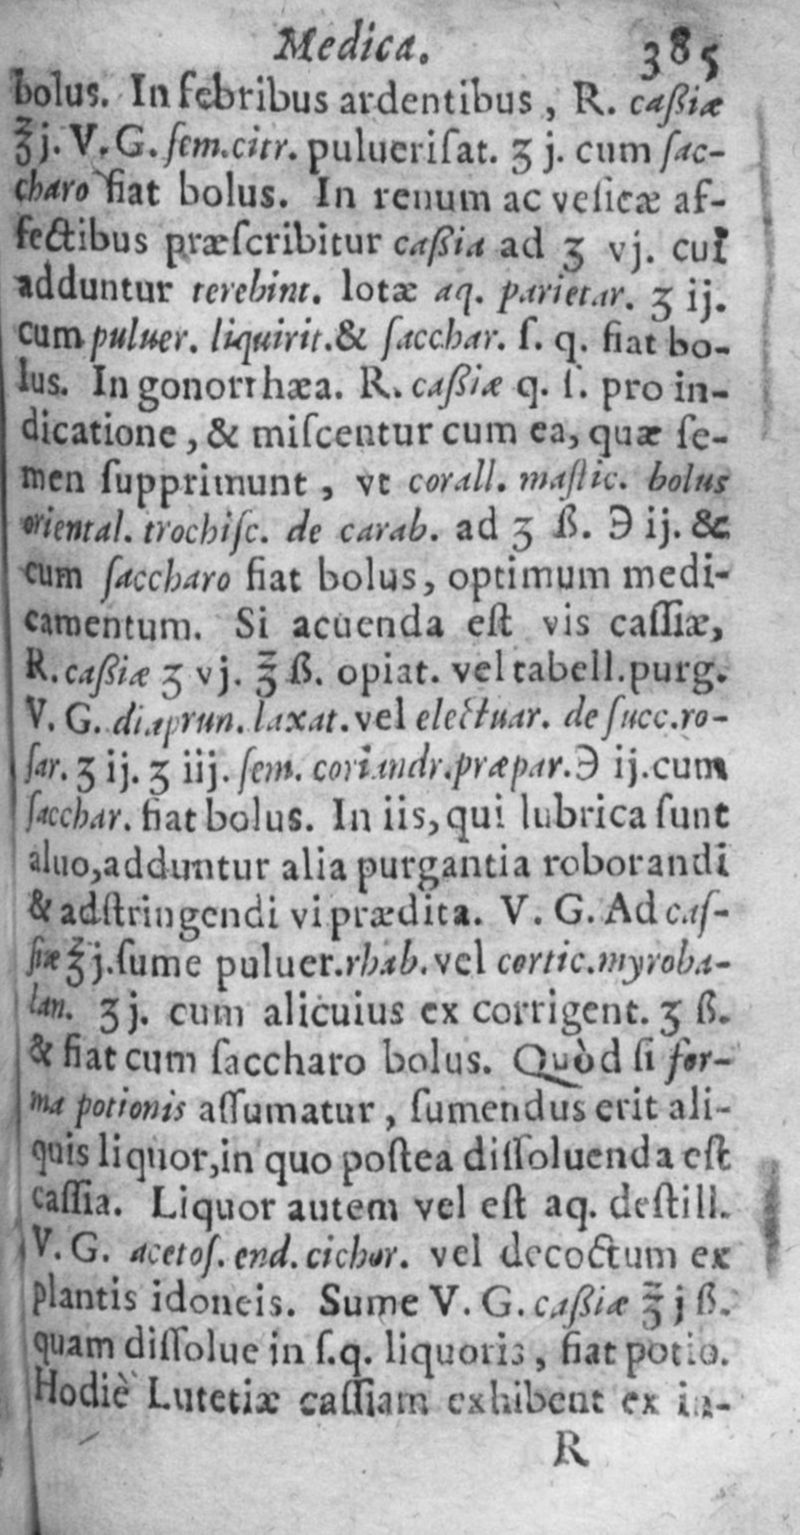 Medica. 385
bolus. In febribus ardentibus, R. caßiæ
℥ j. V. G. ſem. citr. pulueriſat. ʒ j. cum ſac-
charo fiat bolus. In renum ac veſicæ af-
fectibus præſcribitur caßia ad ʒ vj. cui
adduntur terebint. lotæ aq. parietar. ʒ ij.
cum puluer. liquirit. & ſacchar. ſ. q. fiat bo-
lus. In gonorrhæa. R. caßiæ q. ſ. pro in-
dicatione, & miſcentur cum ea, quæ ſe-
men ſupprimunt, vt corall. maſtic. bolus
oriental. trochiſc. de carab. ad ʒ ß. ℈ ij. &
cum ſaccharo fiat bolus, optimum medi-
camentum. Si acuenda eſt vis caſſiæ,
R. caßiæ ʒ vj. ℥ ß. opiat. vel tabell. purg.
V. G. diaprun. laxat. vel electuar. de ſucc. ro-
ſar. ʒ ij. ʒ iij. ſem. coriandr. præpar. ℈ ij. cum
ſacchar. fiat bolus. In iis, qui lubrica ſunt
aluo, adduntur alia purgantia roborandi
& adſtringendi vi prædita. V. G. Ad caſ-
ſiæ ℥ j. ſume puluer. rhab. vel cortic. myroba-
lan. ʒ j. cum alicuius ex corrigent. ʒ ß.
& fiat cum ſaccharo bolus. Quòd ſi for-
ma potionis aſſumatur, ſumendus erit ali-
quis liquor, in quo poſtea diſſoluenda eſt
caſſia. Liquor autem vel eſt aq. deſtill.
V. G. acetoſ. end. cichor. vel decoctum ex
plantis idoneis. Sume V. G. caßiæ ℥ j ß.
quam diſſolue in ſ. q. liquoris, fiat potio.
Hodiè Lutetiæ caſſiam exhibent ex
R